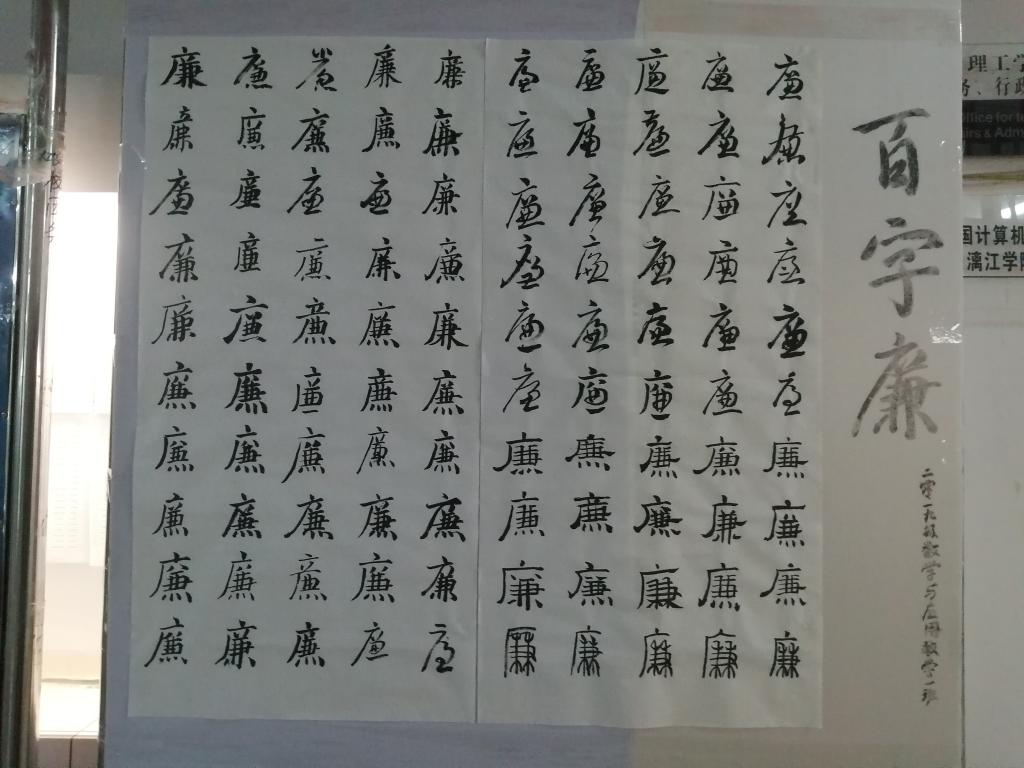 百字廉
二零一九级数学与应用数学一班
廉廉廉廉廉廉廉廉廉廉
廉廉廉廉廉廉廉廉廉廉
廉廉廉廉廉廉廉廉廉廉
廉廉廉廉廉廉廉廉廉廉
廉廉廉廉廉廉廉廉廉廉
廉廉廉廉廉廉廉廉廉廉
廉廉廉廉廉廉廉廉廉廉
廉廉廉廉廉廉廉廉廉廉
廉廉廉廉廉廉廉廉廉廉
廉廉廉廉廉廉廉廉廉廉
理工学
、行政
ffice for te
irs & Adm
国计算机
漓江学院